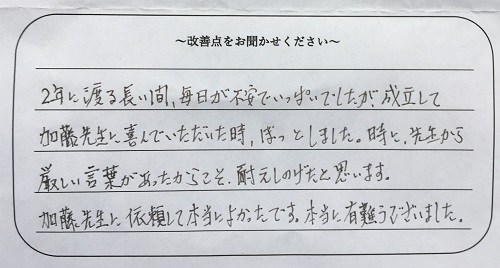 ～改善点をお聞かせください～
2年に渡る長い間、毎日が不安でいっぱいでしたが、成立して
加藤先生に喜んでいただいた時、ほっとしました。時に、先生から
厳しい言葉があったからこそ、耐えしのげたと思います。
加藤先生に依頼して本当によかったです。本当に有難うございました。